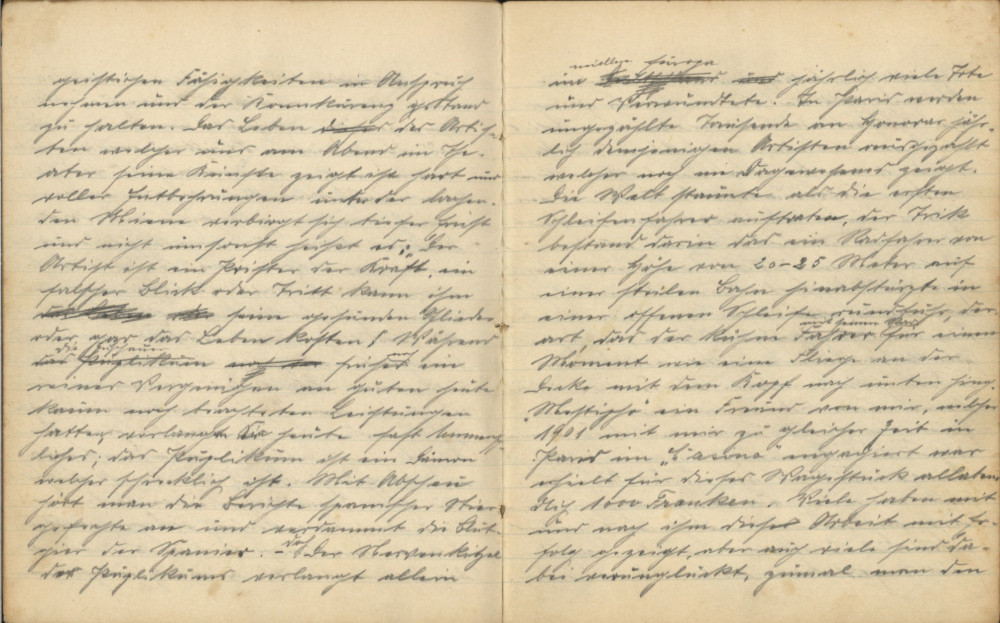 geistigen Fähigkeiten in Anspruch
nehmen und der Konnkurenz gestand
zu halten. Das Leben dieses des Artis-
ten welcher uns am Abend im The-
ater seine Künste zeigt ist hart und
voller Entbehrungen unter der lachen-
den Miene verbirgt sich tiefer Ernst
und nicht umsonst heißt es: „Der
Artist ist ein Prister der Kraft, ein
falscher Blick oder Tritt kann ihm
seine gesunden Glieder
oder gar das Leben kosten! Während
die früheren
das Puplikum früher ein
reines Vergenügen an guten heute
kaum noch beachteten Leistungen
hatten, verlangt heute fast
liches; das Puplikum ist ein Dämon
welcher schrecklich ist. Mit Abscheu
hört man die Berichte spanischer Stier
gefechte an und verdammt die Blut-
gier der Spanier. – Der Nervenkitzel
des Puplikums verlangt allein
Europa
im und jährlich viele Tote
und Verwundtete. In Paris werden
ungezählte Tausende an Honorar jähr-
lich demjenigen Artisten ausgezahlt
welcher noch nie Dagewesenes zeigt.
Die Welt staunte als die ersten
Schleifenfahrer auftraten, der Trik
bestand darin das ein Radfahrer von
einer Höhe von 20–25 Meter auf
einer steilen Bahn hinabstürzte in
einer offenen Schleife rundfuhr, der-
auf seinem Rad
art, das der kühne Fahrer für einen
Moment wie eine Fliege an der
Decke mit dem Kopf nach unten hing.
"Mephisto" ein Freund von mir, welcher
1901 mit mir zu gleicher Zeit in
Paris im "Casino" engagiert war
erhielt für dieses Wagestück allabend-
lich 1000 Franken. Viele haben mit
und nach ihm dieses Arbeit mit Er-
folg gezeigt, aber auch viele sind da-
bei verunglückt, zumal man den